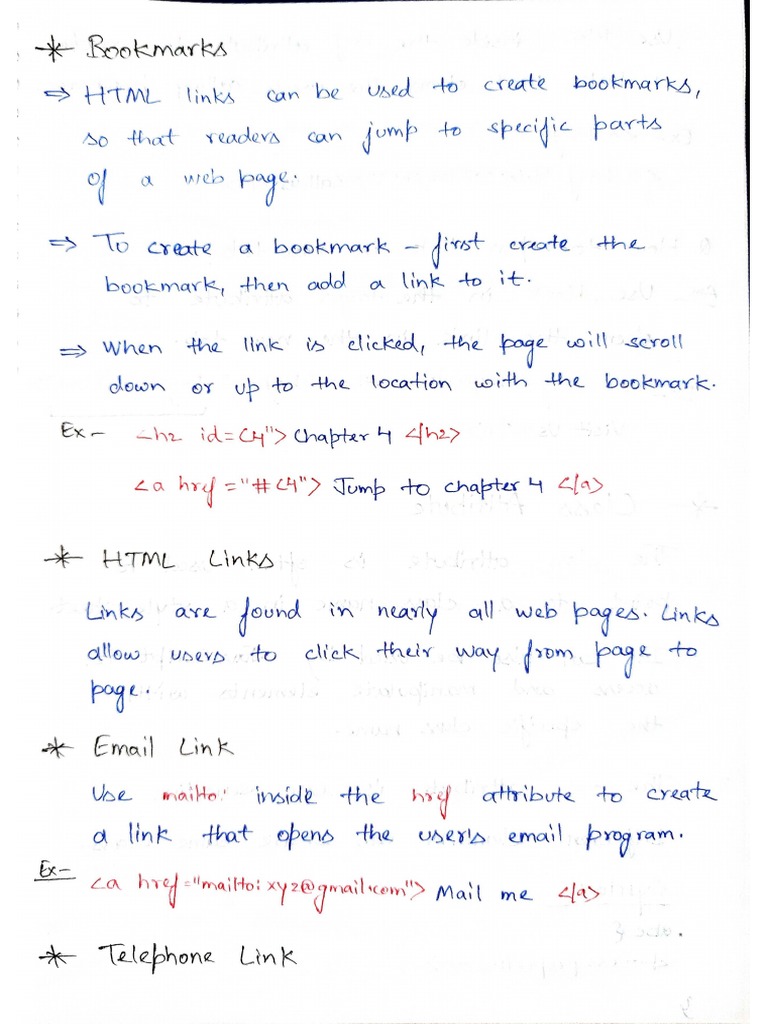 * Bookmarks
⇒ HTML links can be used to create bookmarks,
so that readers can jump to specific parts
of a web page.
⇒ To create a bookmark – first create the
bookmark, then add a link to it.
⇒ When the link is clicked, the page will scroll
down or up to the location with the bookmark.
Ex- <h2 id=C4"> Chapter 4 </h2>
<a href="#C4"> Jump to chapter 4 </a>
* HTML Links
Links are found in nearly all web pages. Links
allow users to click their way from page to
page.
* Email Link
Use mailto: inside the href attribute to create
a link that opens the user's email program.
Ex-
<a href="mailto:xyz@gmail.com"> Mail me </a>
* Telephone Link